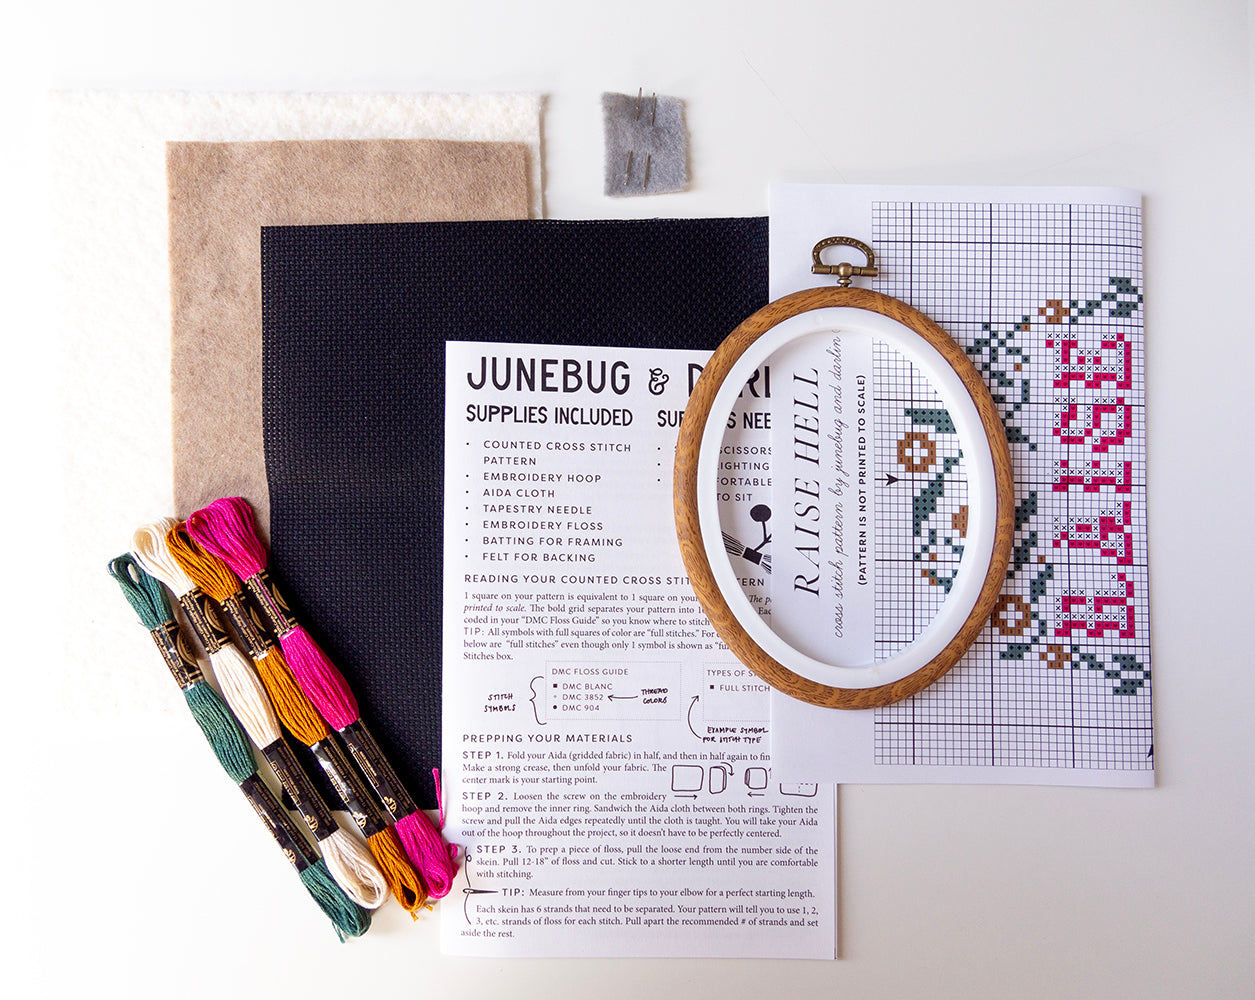 JUNEBUG &
SUPPLIES INCLUDED
• COUNTED CROSS STITCH
PATTERN
• EMBROIDERY HOOP
• AIDA CLOTH
• TAPESTRY NEEDLE
• EMBROIDERY FLOSS
• BATTING FOR FRAMING
• FELT FOR BACKING
SCISSORS
LIGHTING
TO SIT
READING YOUR COUNTED CROSS STITCH
1 square on your pattern is equivalent to 1 square on your
printed to scale. The bold grid separates your pattern into
coded in your "DMC Floss Guide" so you know where to stitch
TIP: All symbols with full squares of color are "full stitches." For
below are "full stitches" even though only 1 symbol is shown as
Stitches box.
DMC FLOSS GUIDE
■ DMC BLANC
DMC 3852
● DMC 904
STITCH
SYMBOLS
THREAD
COLORS
TYPES OF
■ FULL STITCH
EXAMPLE SYMBOL
FOR STITCH TYPE
PREPPING YOUR MATERIALS
STEP 1. Fold your Aida (gridded fabric) in half, and then in half again to
Make a strong crease, then unfold your fabric. The
center mark is your starting point.
STEP 2. Loosen the screw on the embroidery
hoop and remove the inner ring. Sandwich the Aida cloth between both rings. Tighten the
screw and pull the Aida edges repeatedly until the cloth is taught. You will take your Aida
out of the hoop throughout the project, so it doesn't have to be perfectly centered.
STEP 3. To prep a piece of floss, pull the loose end from the number side of the
skein. Pull 12-18" of floss and cut. Stick to a shorter length until you are comfortable
with stitching.
TIP: Measure from your finger tips to your elbow for a perfect starting length.
Each skein has 6 strands that need to be separated. Your pattern will tell you to use 1, 2,
3, etc. strands of floss for each stitch. Pull apart the recommended # of strands and set
aside the rest.
RAISE HELL
cross stitch pattern by junebug and darlin
(PATTERN IS NOT PRINTED TO SCALE)
Raise